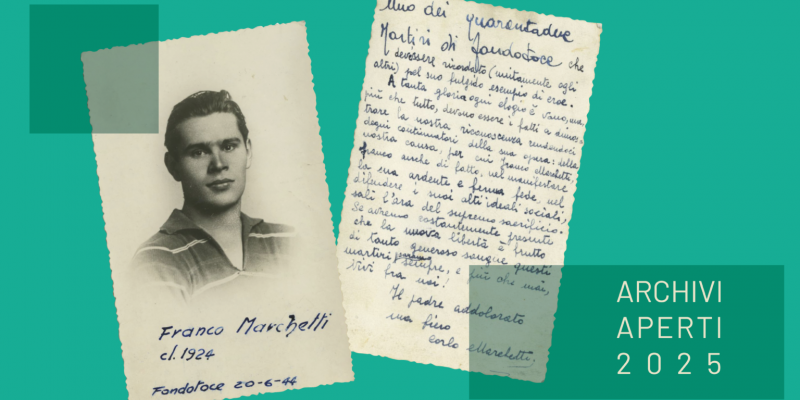 Franco Marchetti
cl. 1924
Fondotoce 20-6-44
Uno dei quarantadue
Martiri di Fondotoce che
dev'essere ricordato (unitamente agli
altri) pel suo fulgido esempio di eroe.
A tanta gloria ogni elogio è vano, ma,
più che tutto, devono essere i fatti a dimos-
trare la nostra riconoscenza rendendoci
degni continuatori della sua opera: della
nostra causa, per cui Franco Marchetti,
franco anche di fatto, nel manifestare
la sua ardente e ferma fede, nel
difendere i suoi alti ideali sociali,
salì l'ara del supremo sacrificio.
Se avremo costantemente presente
che la nuova libertà è frutto
di tanto generoso sangue questi
martiri sempre, e più che mai,
vivi fra noi!
Il padre addolorato
ma fiero
Carlo Marchetti.
ARCHIVI
APERTI
2025